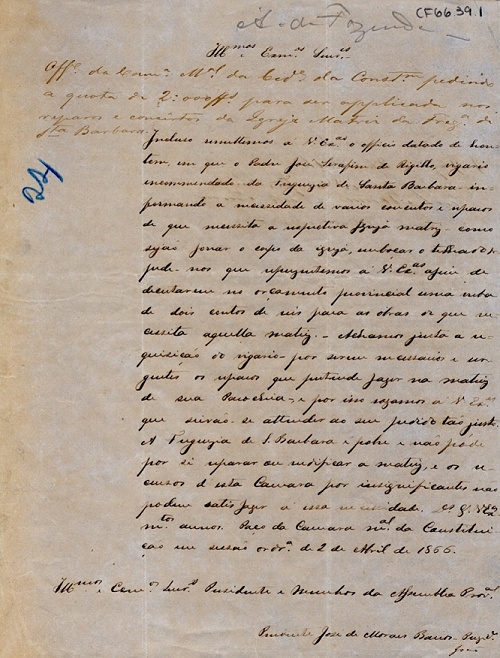 CF66.39.1
A. de Fazenda
Illmos e Exmos Snres
Offo da Camra Mal da Cide da Constam pedindo
a quota de 2:000$ para ser applicada nos
reparos e concertos da Igreja Matriz da Frega di
Sta Barbara.
22
Incluso remettemos á V. Exas o officio datado de hon-
tem, em que o Padre José Serafim de vigario
encommendado da Freguezia de Santa Barbara in-
formando a necessidade de varios concertos e reparos
de que necessita a respectiva Igreja matriz como
sejão forrar o corpo da igreja, embocar o telhado &
pede-nos que representemos á V. Exas afim de
decretarem no orçamento provincial uma verba
de dois contos de reis para as obras de que ne-
cessita aquella matriz. Achamos justa a re-
quisição do vigario por serem necessarios e ur-
gentes os reparos que pretende fazer na matriz
de sua Parochia, e por isso rogamos á V. Exs
que sirvão-se attender ao seu pedido tão justo.
A Freguezia de S. Barbara é pobre e não póde
por si reparar ou reedificar a matriz, e os re-
cursos d'esta Camara por insignificantes não
podem satisfazer a essa necessidade. Ds Ge VExas
mtos annos. Paço da Camara mal da Constitui-
ção em sessão ordra de 2 de Abril de 1866.
Illmos e Exmos Snres Presidente e Membros da Assemblea Proval
Prudente José de Moraes Barros - Presidte